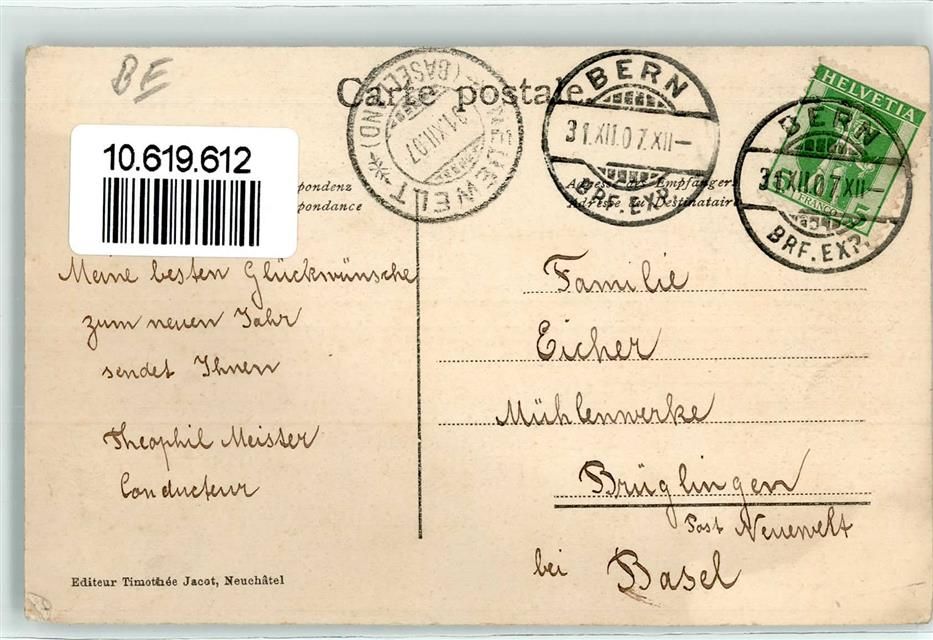 BE
Carte postale.
NEUEWELT
(BASELLAND)
31.XII.07
BERN
31.XII.07.XII—
BRF.EXP.
HELVETIA
FRANCO
5
BERN
31.XII.07.XII—
BRF.EXP.
10.619.612
pondenz
pondance
Adresse des Empfängers
Adresse du Destinataire
Meine besten Glückwünsche
zum neuen Jahr
sendet Ihnen
Theophil Meister
Conducteur
Familie
Eicher
Mühlenwerke
Brüglingen
Post Neuewelt
bei Basel
Editeur Timothée Jacot, Neuchâtel